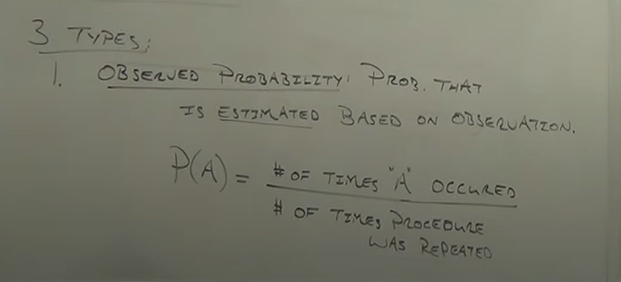 3 TYPES:
1. OBSERVED PROBABILITY: PROB. THAT
IS ESTIMATED BASED ON OBSERVATION.
P(A) = # OF TIMES "A" OCCURED
# OF TIMES PROCEDURE
WAS REPEATED